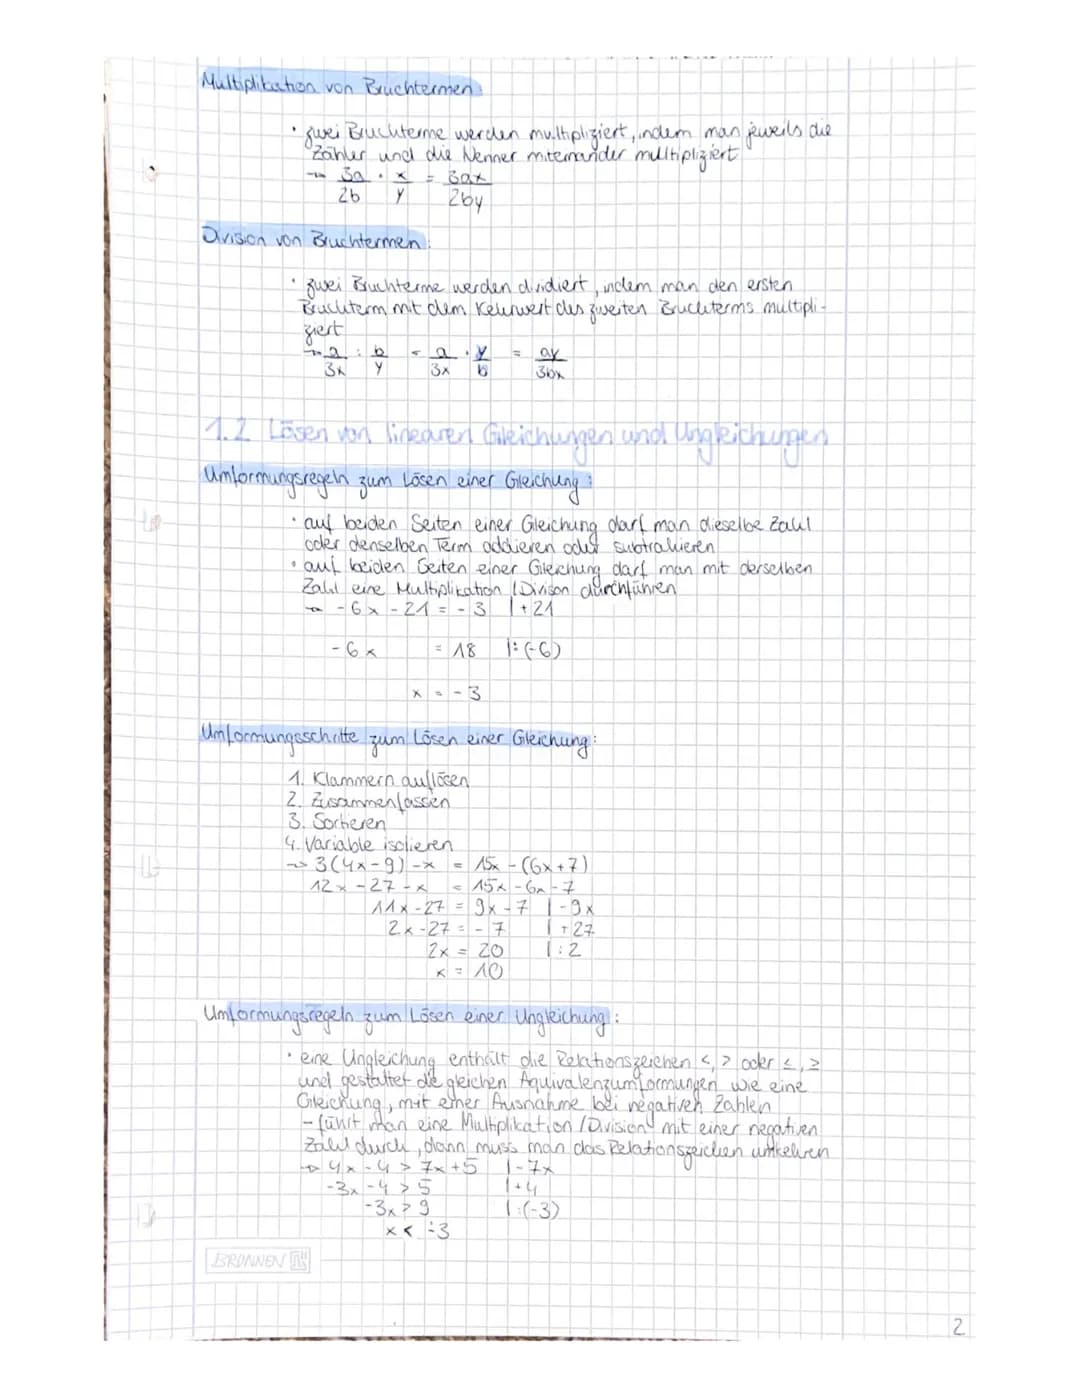 Multiplikation von Bruchtermen:
• zwei Bruchterme werden multipliziert, indem man jeweils die
Zähler und die Nenner miteinander multipliziert
→ 3a/2b · x/y = 3ax/2by
Division von Bruchtermen:
• zwei Bruchterme werden dividiert, indem man den ersten
Bruchterm mit dem Kehrwert des zweiten Bruchterms multipli-
ziert
→ a/3x : b/y = a/3x · y/b = ay/3bx
1.2 Lösen von linearen Gleichungen und Ungleichungen
Umformungsregeln zum Lösen einer Gleichung:
• auf beiden Seiten einer Gleichung darf man dieselbe Zahl
oder denselben Term addieren oder subtrahieren
• auf beiden Seiten einer Gleichung darf man mit derselben
Zahl eine Multiplikation / Divison durchführen
→ -6x - 21 = -3 |+21
-6x = 18 |:(-6)
x = -3
Umformungsschritte zum Lösen einer Gleichung:
1. Klammern auflösen
2. Zusammenfassen
3. Sortieren
4. Variable isolieren
→ 3(4x-9)-x = 15x-(6x+7)
12x-27-x = 15x-6x-7
11x-27 = 9x-7 |-9x
2x-27 = -7 |+27
2x = 20 |:2
x = 10
Umformungsregeln zum Lösen einer Ungleichung:
• eine Ungleichung enthält die Relationszeichen <, > oder ≤, ≥
und gestattet die gleichen Äquivalenzumformungen wie eine
Gleichung, mit einer Ausnahme bei negativen Zahlen
- führt man eine Multiplikation / Division mit einer negativen
Zahl durch, dann muss man das Relationszeichen umkehren
→ 4x-4 > 7x+5 |-7x
-3x-4 > 5 |+4
-3x > 9 |:(-3)
x < -3
BRUNNEN
2